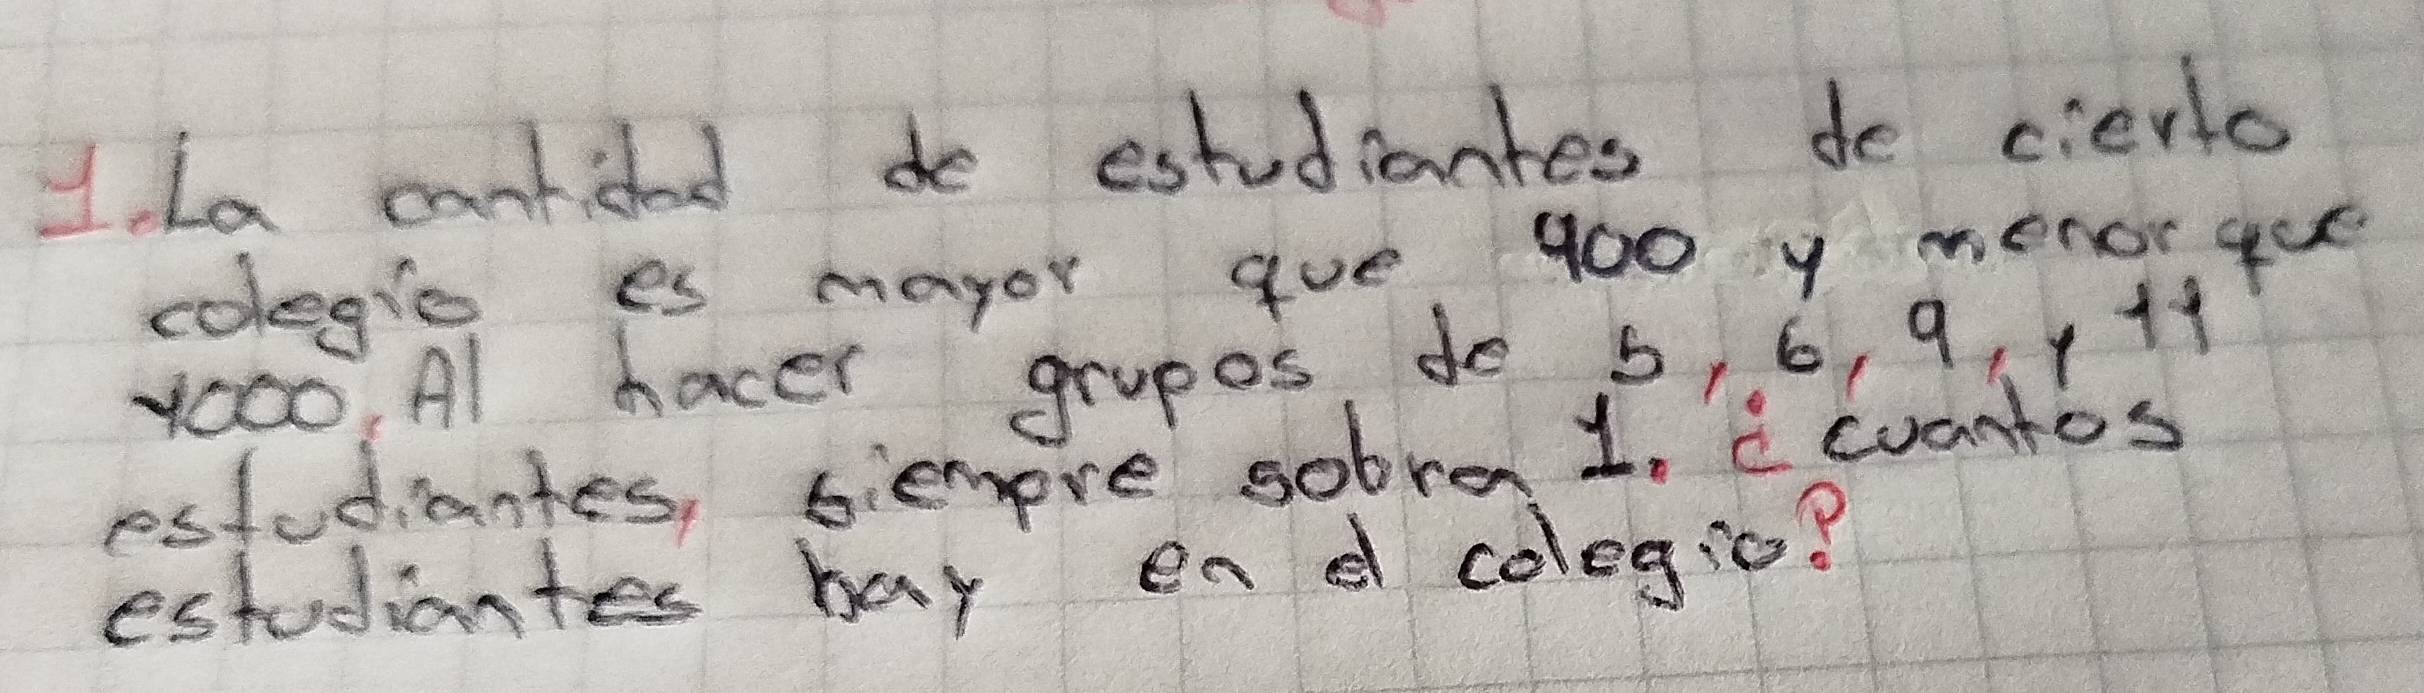 1. La cantidad de estudiantes de cierto
colegio es mayor que 900 y menor que
1000. Al hacer grupos de 5, 6, 9, y 11
estudiantes, siempre sobra 1. ¿cuantos
estudiantes hay en el colegio?